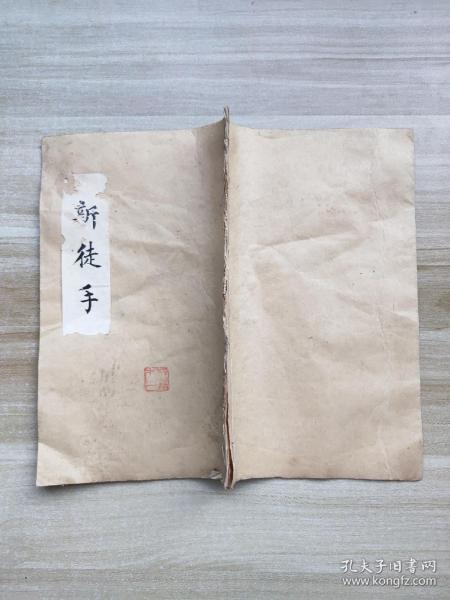 新徒手
孔夫子旧书网
www.kongfz.com